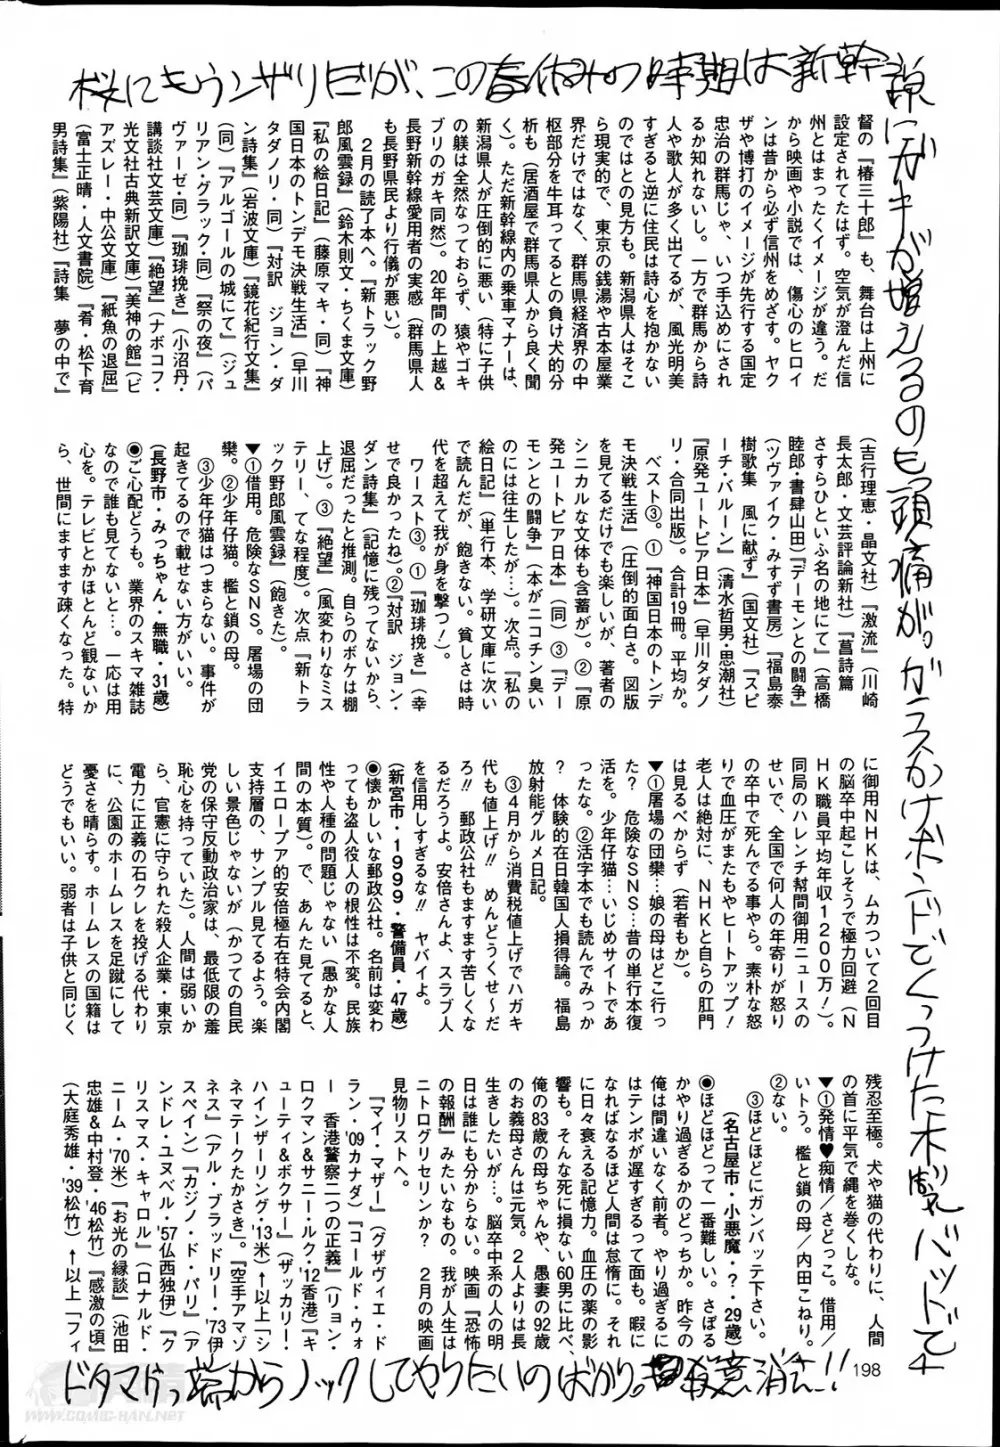 桜にもウンザリだが、この春休みの時期は新幹
線にガキが増えるのも頭痛が。ガラスかけボンドでくっつけた木製バットで、
督の『椿三十郎』も、舞台は上州に
設定されてたはず。空気が澄んだ信
州とはまったくイメージが違う。だ
から映画や小説では、傷心のヒロイ
ンは昔から必ず信州をめざす。ヤク
ザや博打のイメージが先行する国定
忠治の群馬じゃ、いつ手込めにされ
るか知れないし。一方で群馬から詩
人や歌人が多く出てるが、風光明美
すぎると逆に住民は詩心を抱かない
のではとの見方も。新潟県人はそこ
ら現実的で、東京の銭湯や古本屋業
界だけではなく、群馬県経済界の中
枢部分を牛耳ってるとの負け犬的分
析も（居酒屋で群馬県人から良く聞
く）。ただ新幹線内の乗車マナーは、
新潟県人が圧倒的に悪い（特に子供
の躾は全然なっておらず、猿やゴキ
ブリのガキ同然）。20年間の上越＆
長野新幹線愛用者の実感（群馬県人
も長野県民より行儀が悪い）。
２月の読了本へ。『新トラック野
郎風雲録』（鈴木則文・ちくま文庫）
『私の絵日記』（藤原マキ・同）『神
国日本のトンデモ決戦生活』（早川
タダノリ・同）『対訳　ジョン・ダ
ン詩集』（岩波文庫）『鏡花紀行文集』
（同）『アルゴールの城にて』（ジュ
リアン・グラック・同）『祭の夜』（パ
ヴァーゼ・同）『珈琲挽き』（小沼丹・
講談社文芸文庫）『絶望』（ナボコフ・
光文社古典新訳文庫）『美神の館』（ビ
アズレー・中公文庫）『紙魚の退屈』
（富士正晴・人文書院）『肴・松下育
男詩集』（紫陽社）『詩集　夢の中で』
（吉行理恵・晶文社）『激流』（川崎
長太郎・文芸評論新社）『菖詩篇
さすらひといふ名の地にて』（高橋
睦郎・書肆山田）『デーモンとの闘争』
（ツヴァイク・みすず書房）『福島泰
樹歌集　風に献ず』（国文社）『スピ
ーチ・バルーン』（清水哲男・思潮社）
『原発ユートピア日本』（早川タダノ
リ・合同出版）。合計19冊。平均か。
ベスト③。①『神国日本のトンデ
モ決戦生活』（圧倒的面白さ。図版
を見てるだけでも楽しいが、著者の
シニカルな文体も含蓄が）。②『原
発ユートピア日本』（同）③『デー
モンとの闘争』（本がニコチン臭い
のには往生したが…）。次点。『私の
絵日記』（単行本、学研文庫に次い
で読んだが、飽きない。貧しさは時
代を超えて我が身を撃つ！）。
ワースト③。①『珈琲挽き』（幸
せで良かったね）。②『対訳　ジョン・
ダン詩集』（記憶に残ってないから、
退屈だったと推測。自らのボケは棚
上げ）。③『絶望』（風変わりなミス
テリー、てな程度）。次点。『新トラ
ック野郎風雲録』（飽きた）。
▼①借用。危険なＳＮＳ。屠場の団
欒。②少年仔猫。檻と鎖の母。
③少年仔猫はつまらない。事件が
起きてるので載せない方がいい。
（長野市・みっちゃん・無職・31歳）
◉ご心配どうも。業界のスキマ雑誌
なので誰も見てないと…。一応は用
心を。テレビとかほとんど観ないか
ら、世間にますます疎くなった。特
に御用ＮＨＫは、ムカついて２回目
の脳卒中起こしそうで極力回避（Ｎ
ＨＫ職員平均年収１２００万！）。
同局のハレンチ幇間御用ニュースの
せいで、全国で何人の年寄りが怒り
の卒中で死んでる事やら。素朴な怒
りで血圧がまたもやヒートアップ！
老人は絶対に、ＮＨＫと自らの肛門
は見るべからず（若者もか）。
▼①屠場の団欒…娘の母はどこ行っ
た？　危険なＳＮＳ…昔の単行本復
活を。少年仔猫…いじめサイトであ
ったな。②活字本でも読んでみっか
？　体験的在日韓国人損得論。福島
放射能グルメ日記。
③４月から消費税値上げでハガキ
代も値上げ!!　めんどうくせ～だ
ろ!!　郵政公社もますます苦しくな
るだろうよ。安倍さんよ、スラブ人
を信用しすぎるな!!　ヤバイよ。
（新宮市・１９９９・警備員・47歳）
◉懐かしいな郵政公社。名前は変わ
っても盗人役人の根性は不変。民族
性や人種の問題じゃない（愚かな人
間の本質）。で、あんた見てると、
イエロープア的安倍極右在特会内閣
支持層の、サンプル見てるよう。楽
しい景色じゃないが（かつての自民
党の保守反動政治家は、最低限の羞
恥心を持っていた）。人間は弱いか
ら、官憲に守られた殺人企業・東京
電力に正義の石クレを投げる代わり
に、公園のホームレスを足蹴にして
憂さを晴らす。ホームレスの国籍は
どうでもいい。弱者は子供と同じく
残忍至極。犬や猫の代わりに、人間
の首に平気で縄を巻くしな。
▼①発情♥痴情／さどっこ。借用／
いトう。檻と鎖の母／内田こねり。
②ない。
③ほどほどにガンバッテ下さい。
（名古屋市・小悪魔・？・29歳）
◉ほどほどって一番難しい。さぼる
かやり過ぎるかのどっちか。昨今の
俺は間違いなく前者。やり過ぎるに
はテンポが遅すぎるって面も。暇に
なればなるほど人間は怠惰に。それ
に日々衰える記憶力。血圧の薬の影
響も。そんな死に損ない60男に比べ、
俺の83歳の母ちゃんや、愚妻の92歳
のお義母さんは元気。２人よりは長
生きしたいが…。脳卒中系の人の明
日は誰にも分からない。映画『恐怖
の報酬』みたいなもの。我が人生は
ニトログリセリンか？　２月の映画
見物リストへ。
『マイ・マザー』（グザヴィエ・ド
ラン・'09カナダ）『コールド・ウォ
ー　香港警察二つの正義』（リョン・
ロクマン＆サニー・ルク・'12香港）『キ
ューティ＆ボクサー』（ザッカリー・
ハインザーリング・'13米）↑以上「シ
ネマテークたかさき」。『空手アマゾ
ネス』（アル・ブラッドリー・'73伊
スペイン）『カジノ・ド・パリ』（ア
ンドレ・ユヌベル・'57仏西独伊）『ク
リスマス・キャロル』（ロナルド・
ニーム・'70米）『お光の縁談』（池田
忠雄＆中村登・'46松竹）『感激の頃』
（大庭秀雄・'39松竹）↑以上「フィ
ドタマかっ端からノックしてやりたいのばかり。殺意消え…!!
198
WWW.COMIC-HAN.NET